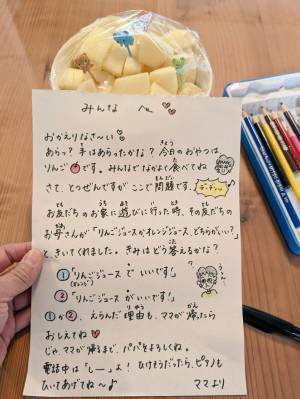 みんな へ ♡♡
おかえりなさ〜い♡
あらっ？手はあらったかな？今日のおやつは、
りんごです。みんなでなかよく食べてね
さて、とつぜんですが ここで問題です。デーデン〜
お友だちのお家に遊びに行った時、その友だちの
お母さんが「りんごジュースかオレンジジュース、どちらがいい？」
ときいてくれました。きみはどう答えるかな？
①「りんごジュースでいいです！」
②「りんごジュースがいいです！」
①か②、えらんだ理由も、ママが帰ったら
おしえてね♡
じゃ、ママが帰るまで、パパをよろしくね。
電話中は「しー」よ！ひけそうだったら、ピアノも
ひいてあげてね〜♪
ママより